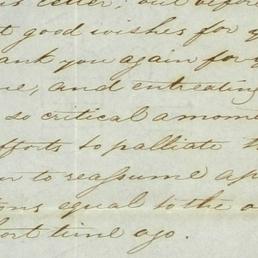 is letter, but before
t good wishes for y
ank you again for y
ne, and entreating
so critical a mome
fforts to palliate th
n to reassume a
ions equal to the a
hort time ago.